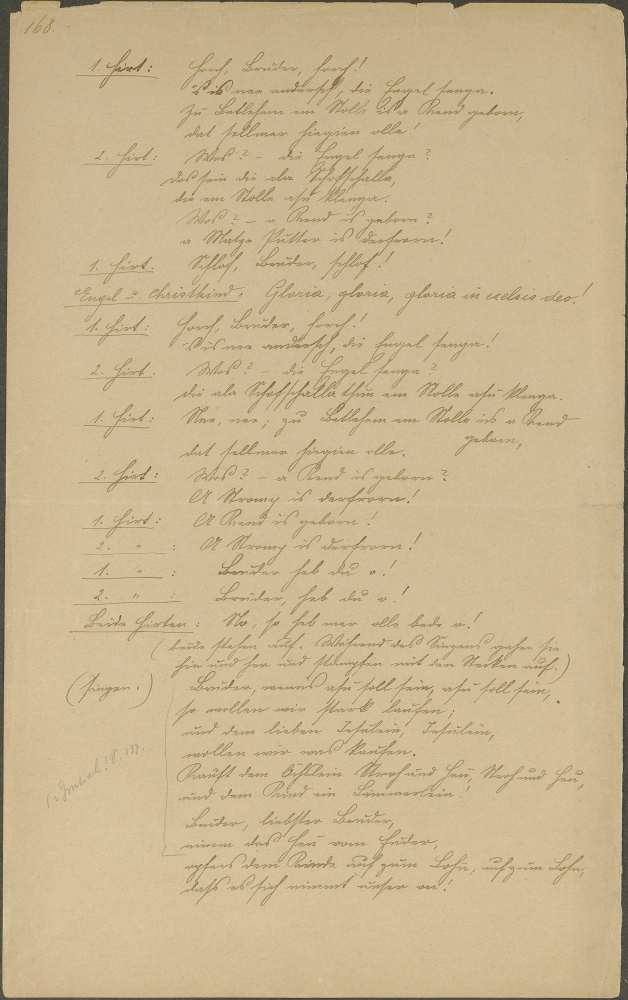 168.
1. Hirt: Horch, Bruder, horch!
's is nee andersch, die Engel senga.
Zu Betlehem em Stolle is a Kend geborn,
dat sellmer hiegien olle!
2. Hirt: Wos? – die Engel senga?
Das sein die ala Schofschalla,
die em Stolle asu klenga.
Wos? – a Kend is geborn?
a Matze Putter is derfrorn!
1. Hirt. Schlof, Bruder, schlof!
Engel u. Christkind: Gloria, gloria, gloria in excelsis deo!
1. Hirt: Horch, Bruder, horch!
's is nee andersch, die Engel senga!
2. Hirt. Wos? – die Engel senga?
die ala Schofschalla thun em Stolle asu klenga.
1. Hirt: Nee, nee; zu Betlehem em Stolle is a Kend
geborn,
dat sellmer hiegien olle.
2. Hirt: Wos? – a Kend is geborn?
A Stromp is derfrorn!
1. Hirt: A Kend is geborn!
2. " : A Stromp is derfrorn!
1. " : Bruder heb du o!
2. " : Breider, heb du o!
Beide Hirten: No, so heb mer olle bede o!
(beide stehen auf. Während des Singens gehen sie
hin und her und stampfen mit den Stecken auf.)
(singen:) Bruder, wenns asu soll sein, asu soll sein,
so wollen wir stark laufen;
und dem lieben Jesulein, Jesulein,
wollen wir was kaufen.
Kauft dem Öchslein Stroh und Heu, Stroh und Heu,
und dem Kind ein Lämmerlein!
Bruder, liebster Bruder,
nimm das Heu vom Fuder,
opfers dem Kinde auf zum Lohn, auf zum Lohn,
dass es sich nimmt unser on!